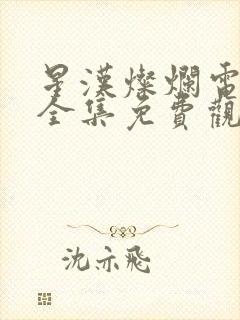 星漢燦爛電
全集免費觀
沈亦飛